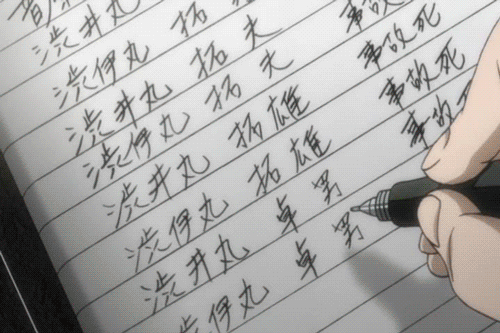 音
渋井丸
渋伊丸 拓
渋井丸 拓夫
渋伊丸 拓夫 事故死
渋井丸 拓雄 事故死
渋伊丸 拓雄 事故死
渋井丸 卓男 事故死
渋伊丸 卓男